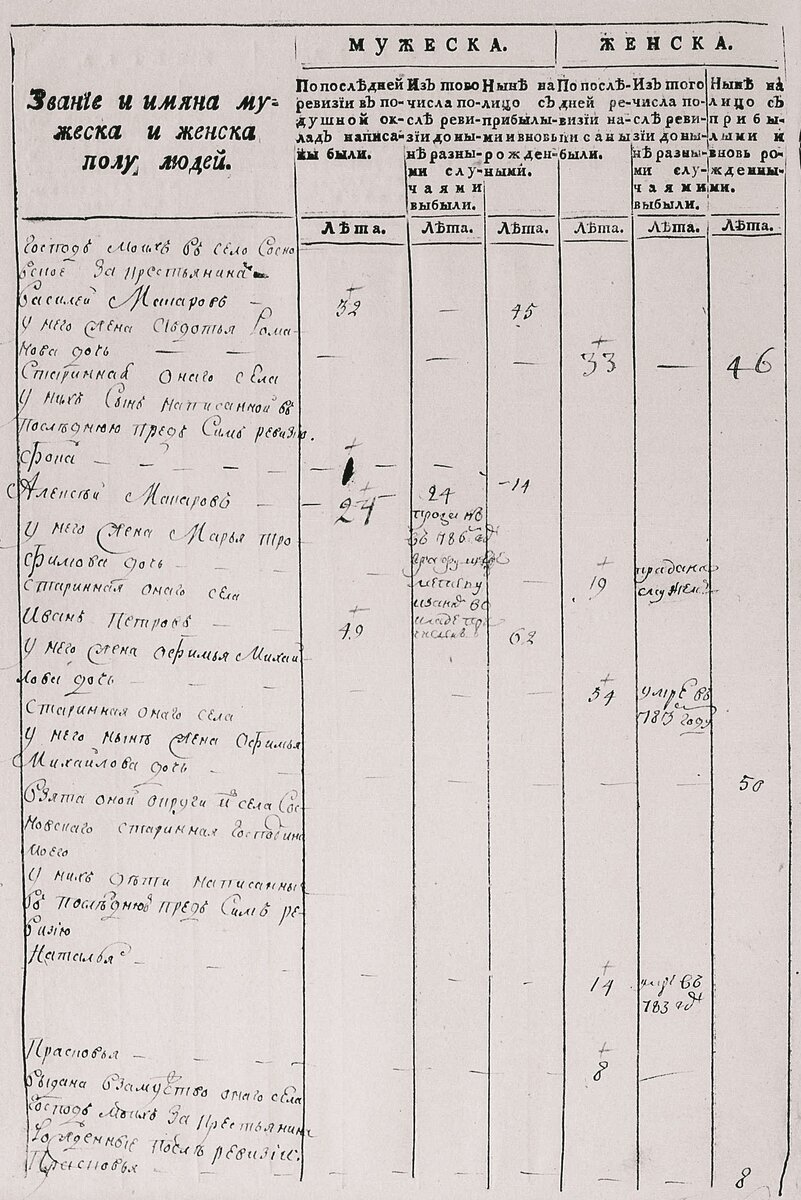 МУЖЕСКА.
ЖЕНСКА.
Званіе и имяна му-
жеска и женска
полу людей.
По послѣдней
ревизіи въ по-
душной ок-
ладъ написа-
ны были.
Изъ тово
числа по-
слѣ реви-
зіи до ны-
нѣ разны-
ми слу-
чаями
выбыли.
Нынѣ на
лицо съ
прибылы-
ми и вновь
рожден-
ными.
По послѣ-
дней ре-
визіи на-
писаны
были.
Изъ того
числа по-
слѣ реви-
зіи до ны-
нѣ разны-
ми слу-
чаями
выбыли.
Нынѣ на
лицо съ
прибы-
лыми и
вновь ро-
жденны-
ми.
Лѣта. Лѣта. Лѣта. Лѣта. Лѣта. Лѣта.
Господъ моихъ въ село Сосно
вское за крестьянина
Василей Макаровъ 32 — 45
у него жена Авдотья Рома
нова дочь 33 — 46
Старинная онаго села
у нихъ сынъ написанной въ
последнюю предъ симъ ревизію
1 14
Алексѣй Макаровъ 24 24
проданъ
въ 786 год
у него жена Марья тро
фимова дочь 19 продана
с мужемъ
Старинная онаго села
Иванъ Петровъ 49 62
у него жена Афимья Михай
лова дочь 54 умре въ
783 году
Старинная онаго села
у него нынѣ жена Афимья
Михайлова дочь 50
Взята оной округи села Сос
новскаго старинная господина
моего
у нихъ дѣти написанны
въ последнюю предъ симъ ре
визію
Наталья 14 въ
783 год
Прасковья 8
выдана взамужство онаго села
господъ моихъ за крестьянина
рожденные послѣ ревизіи
Прасковья 8